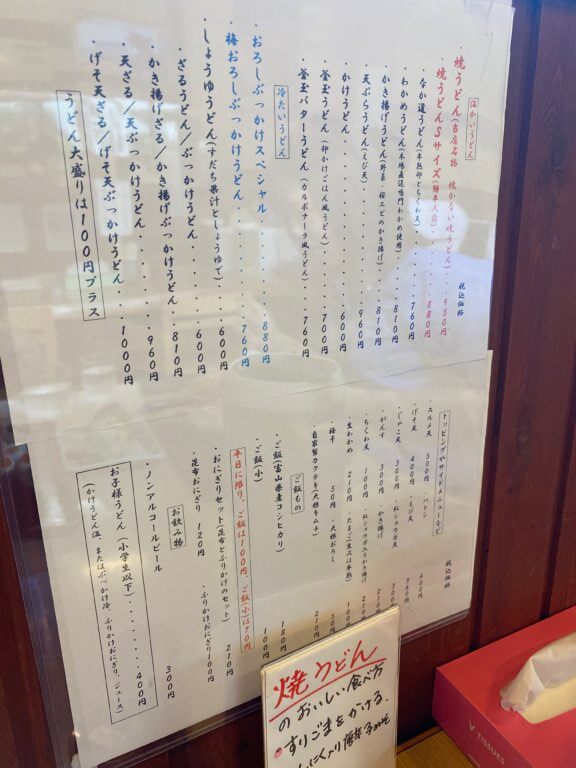 温かいうどん
税込価格
・焼うどん(当店名物 焼かない焼うどん)・・950円
・焼うどんSサイズ(麺半人前)・・・・・880円
・なか道うどん(半熟卵とちくわ天)・・・760円
・わかめうどん(本場直送鳴門わかめ使用)・・810円
・かき揚げうどん(野菜・桜エビのかき揚げ)・・810円
・天ぷらうどん(えび天)・・・・・・960円
・かけうどん・・・・・・・・・・600円
・釜玉うどん(卵かけごはん風うどん)・・・700円
・釜玉バターうどん(カルボナーラ風うどん)・・760円
冷たいうどん
・おろしぶっかけスペシャル・・・・・・880円
・梅おろしぶっかけうどん・・・・・・760円
・しょうゆうどん(すだち果汁としょうゆで)・・600円
・ざるうどん/ぶっかけうどん・・・・・600円
・かき揚げざる/かき揚げぶっかけうどん・・810円
・天ざる/天ぶっかけうどん・・・・・・960円
・げそ天ざる/げそ天ぶっかけうどん・・・1000円
うどん大盛りは100円プラス
トッピングやサイドメニューなど
税込価格
・スルメ天 500円
・げそ天 400円
・じゃこ天 300円
・がんす
・ちくわ天 100円
・生わかめ 210円
・梅干 50円
・大根おろし 50円
・自家製カクテキ(大根キムチ) 210円
ご飯もの
・ご飯(富山県産コシヒカリ) 180円
・ご飯(小) 100円
平日に限り、ご飯は100円、ご飯(小)は70円
・おにぎりセット(昆布とふりかけのセット) 210円
・昆布おにぎり 120円 ・ふりかけおにぎり 100円
お飲み物
・ノンアルコールビール 300円
お子様うどん(小学生以下)・・・・・・・400円
(かけうどん温、またはぶっかけ冷、ふりかけおにぎり、ジュース)
焼うどん
のおいしい食べ方
・すりごまをかける。
TISSUES